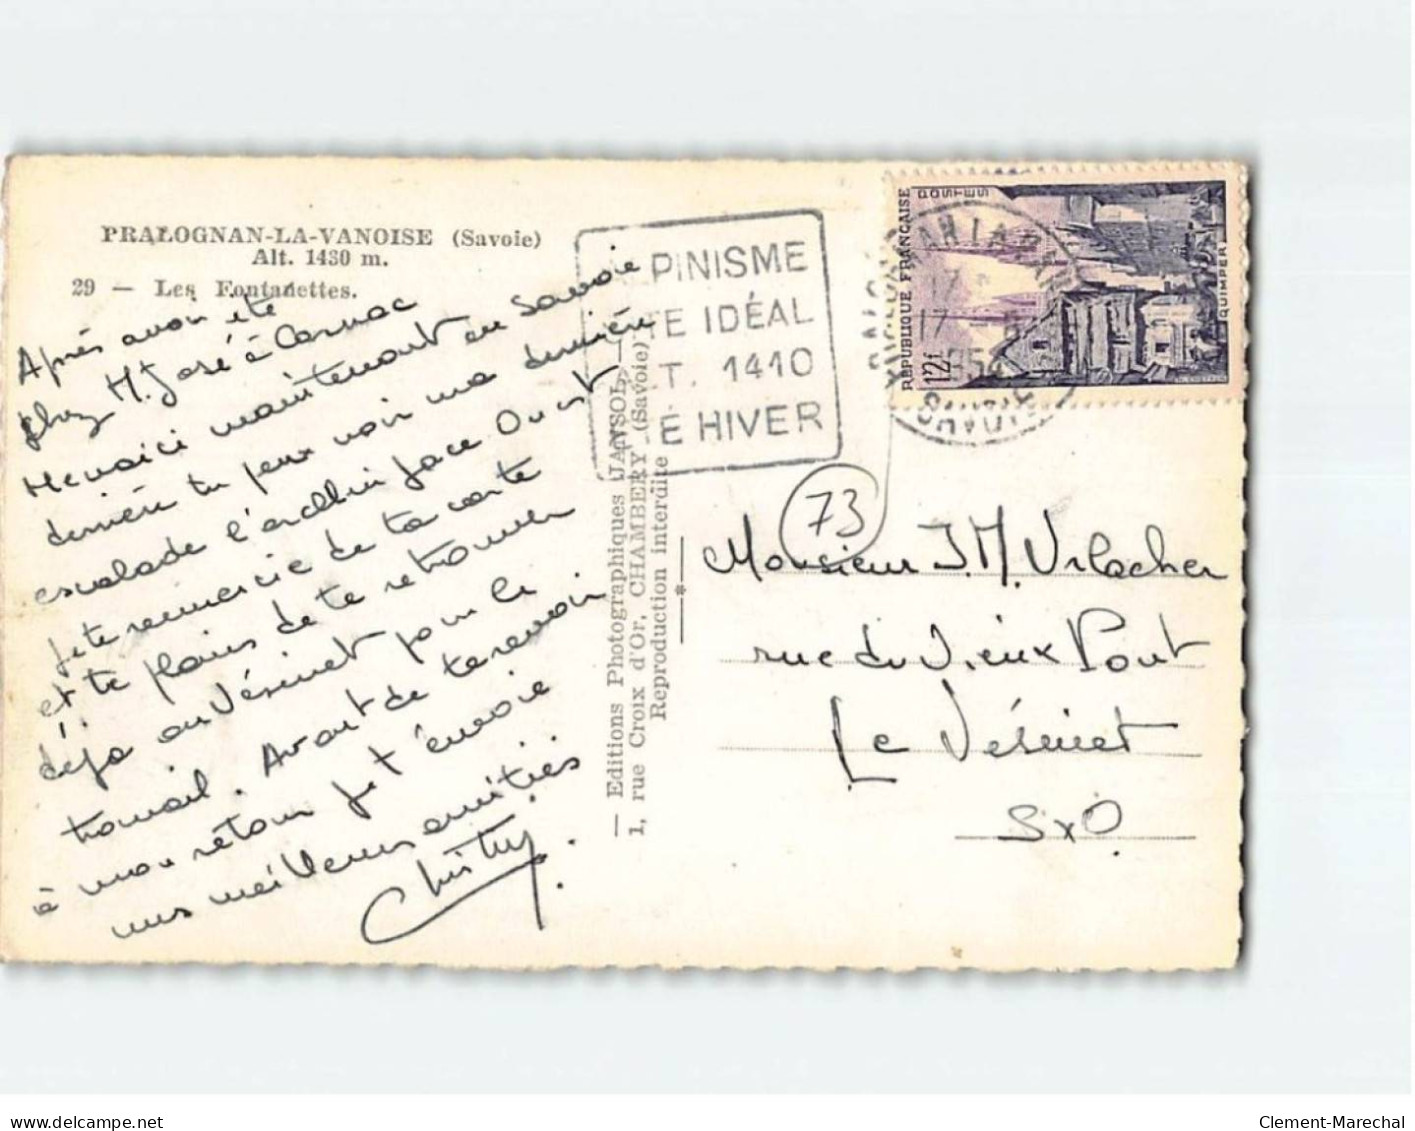 PRALOGNAN-LA-VANOISE (Savoie)
Alt. 1430 m.
29 — Les Fontanettes.
Après avoir été
chez M. José à Carnac
Me voici maintenant en Savoie
dernière tu peux voir ma dernière
escalade l'arcellin face Ouest
Je te remercie de ta carte
et te plains de te retrouver
déja au Vésinet pour le
travail. Avant de te revoir
à mon retour je t'envoie
mes meilleures amitiés
Christy
— Editions Photographiques JANSOL —
1, rue Croix d'Or, CHAMBÉRY (Savoie)
Reproduction interdite
PINISME
TE IDÉAL
T. 1410
E HIVER
RÉPUBLIQUE FRANÇAISE
POSTES
12f
QUIMPER
17
1954
73
Monsieur J.M. Urlacher
rue du Vieux Pont
Le Vésinet
SxO
www.delcampe.net
Clement-Marechal